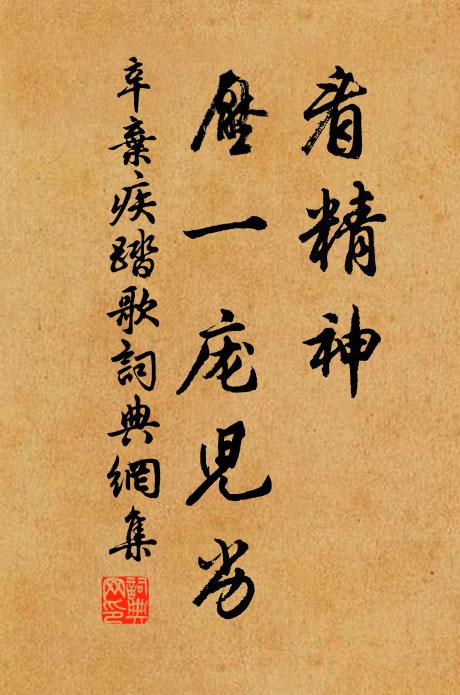 看精神
壓一庞兒劣
辛棄疾踏歌詞典網集
詞典网印